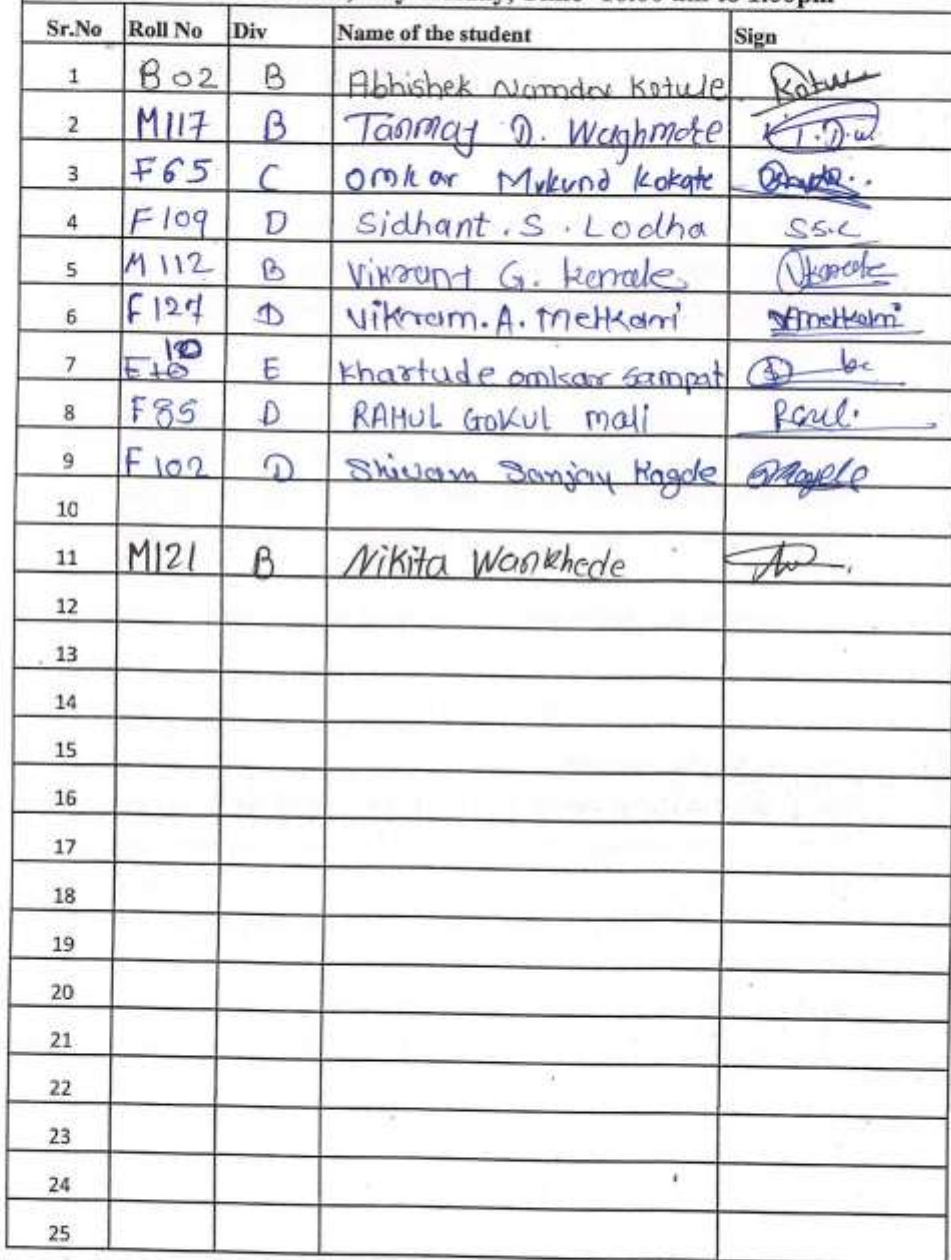 Sr.No Roll No Div Name of the student Sign
1 B02 B Abhishek Namdev Kotule Kotule
2 M117 B Tanmay D. Waghmare T.D.W
3 F65 C Omkar Mukund Kokate
4 F109 D Sidhant . S . Lodha S.S.L
5 M112 B Vikrant G. Kenale
6 F127 D Vikram. A. Metkari
7 E10 E Khartude omkar sampat
8 F85 D RAHUL GOKUL mali
9 F102 D Shivam Sanjay Kagde
10
11 M121 B Nikita Wankhede
12
13
14
15
16
17
18
19
20
21
22
23
24
25